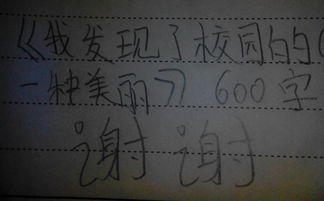 《我发现了校园的
一种美丽》 600字
谢谢